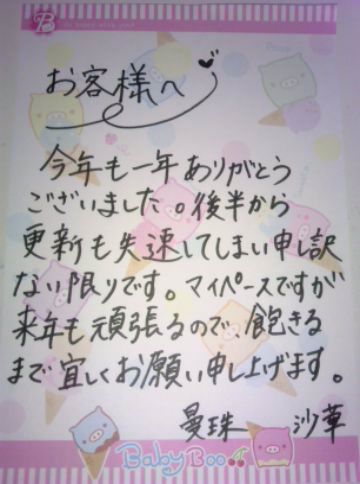 お客様へ
今年も一年ありがとう
ございました。後半から
更新も失速してしまい申し訳
ない限りです。マイペースですが
来年も頑張るので、飽きる
まで宜しくお願い申し上げます。
曼珠 沙華
Baby Boo